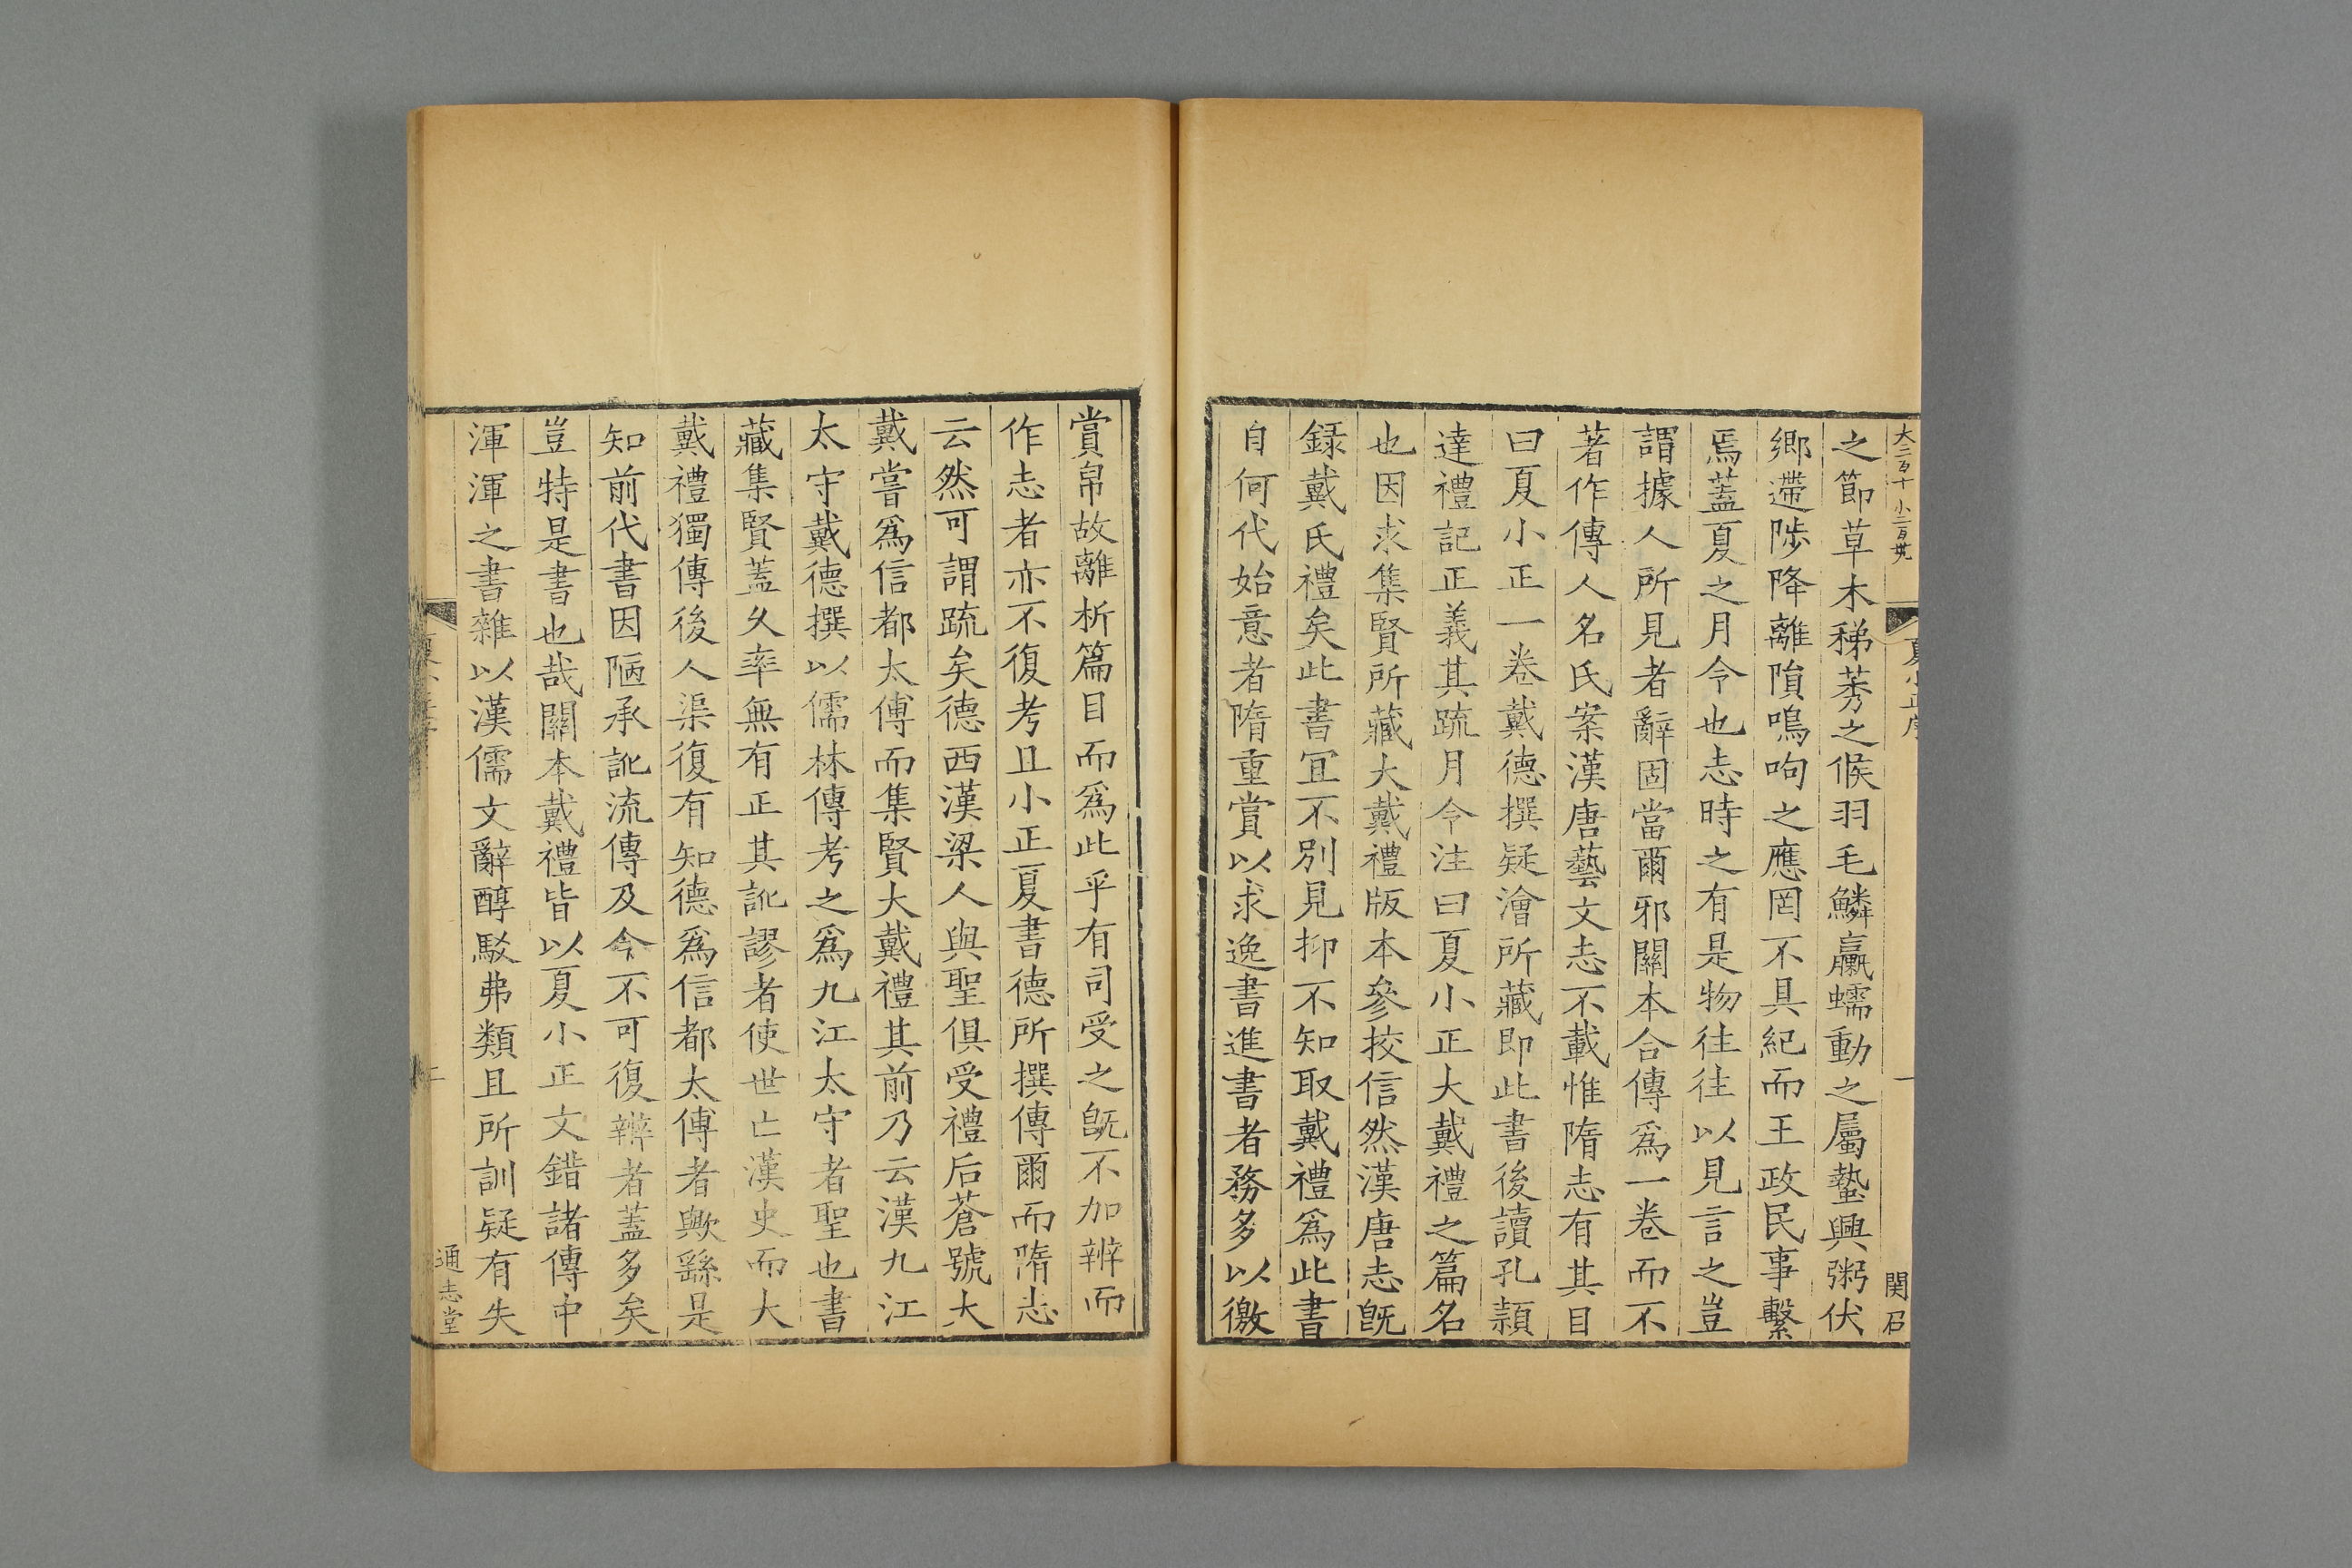 大二百十 小二百廿九
夏小正序
一
関召
之節草木稊莠之候羽毛鱗臝蠕動之屬蟄興粥伏
鄉遰陟降離隕鳴呴之應罔不具紀而王政民事繫
焉蓋夏之月令也志時之有是物往往以見言之豈
謂據人所見者辭固當爾邪關本合傳爲一卷而不
著作傳人名氏案漢唐藝文志不載惟隋志有其目
曰夏小正一卷戴德撰疑澮所藏即此書後讀孔頴
達禮記正義其疏月令注曰夏小正大戴禮之篇名
也因求集賢所藏大戴禮版本參挍信然漢唐志旣
録戴氏禮矣此書冝不別見抑不知取戴禮爲此書
自何代始意者隋重賞以求逸書進書者務多以徼
賞帛故離析篇目而爲此乎有司受之旣不加辨而
作志者亦不復考且小正夏書德所撰傳爾而隋志
云然可謂疏矣德西漢梁人與聖俱受禮后蒼號大
戴嘗爲信都太傅而集賢大戴禮其前乃云漢九江
太守戴德撰以儒林傳考之爲九江太守者聖也書
藏集賢蓋久率無有正其訛謬者使世亡漢史而大
戴禮獨傳後人渠復有知德爲信都太傅者歟繇是
知前代書因陋承訛流傳及今不可復辨者蓋多矣
豈特是書也哉關本戴禮皆以夏小正文錯諸傳中
渾渾之書雜以漢儒文辭醇駁弗類且所訓疑有失
通志堂